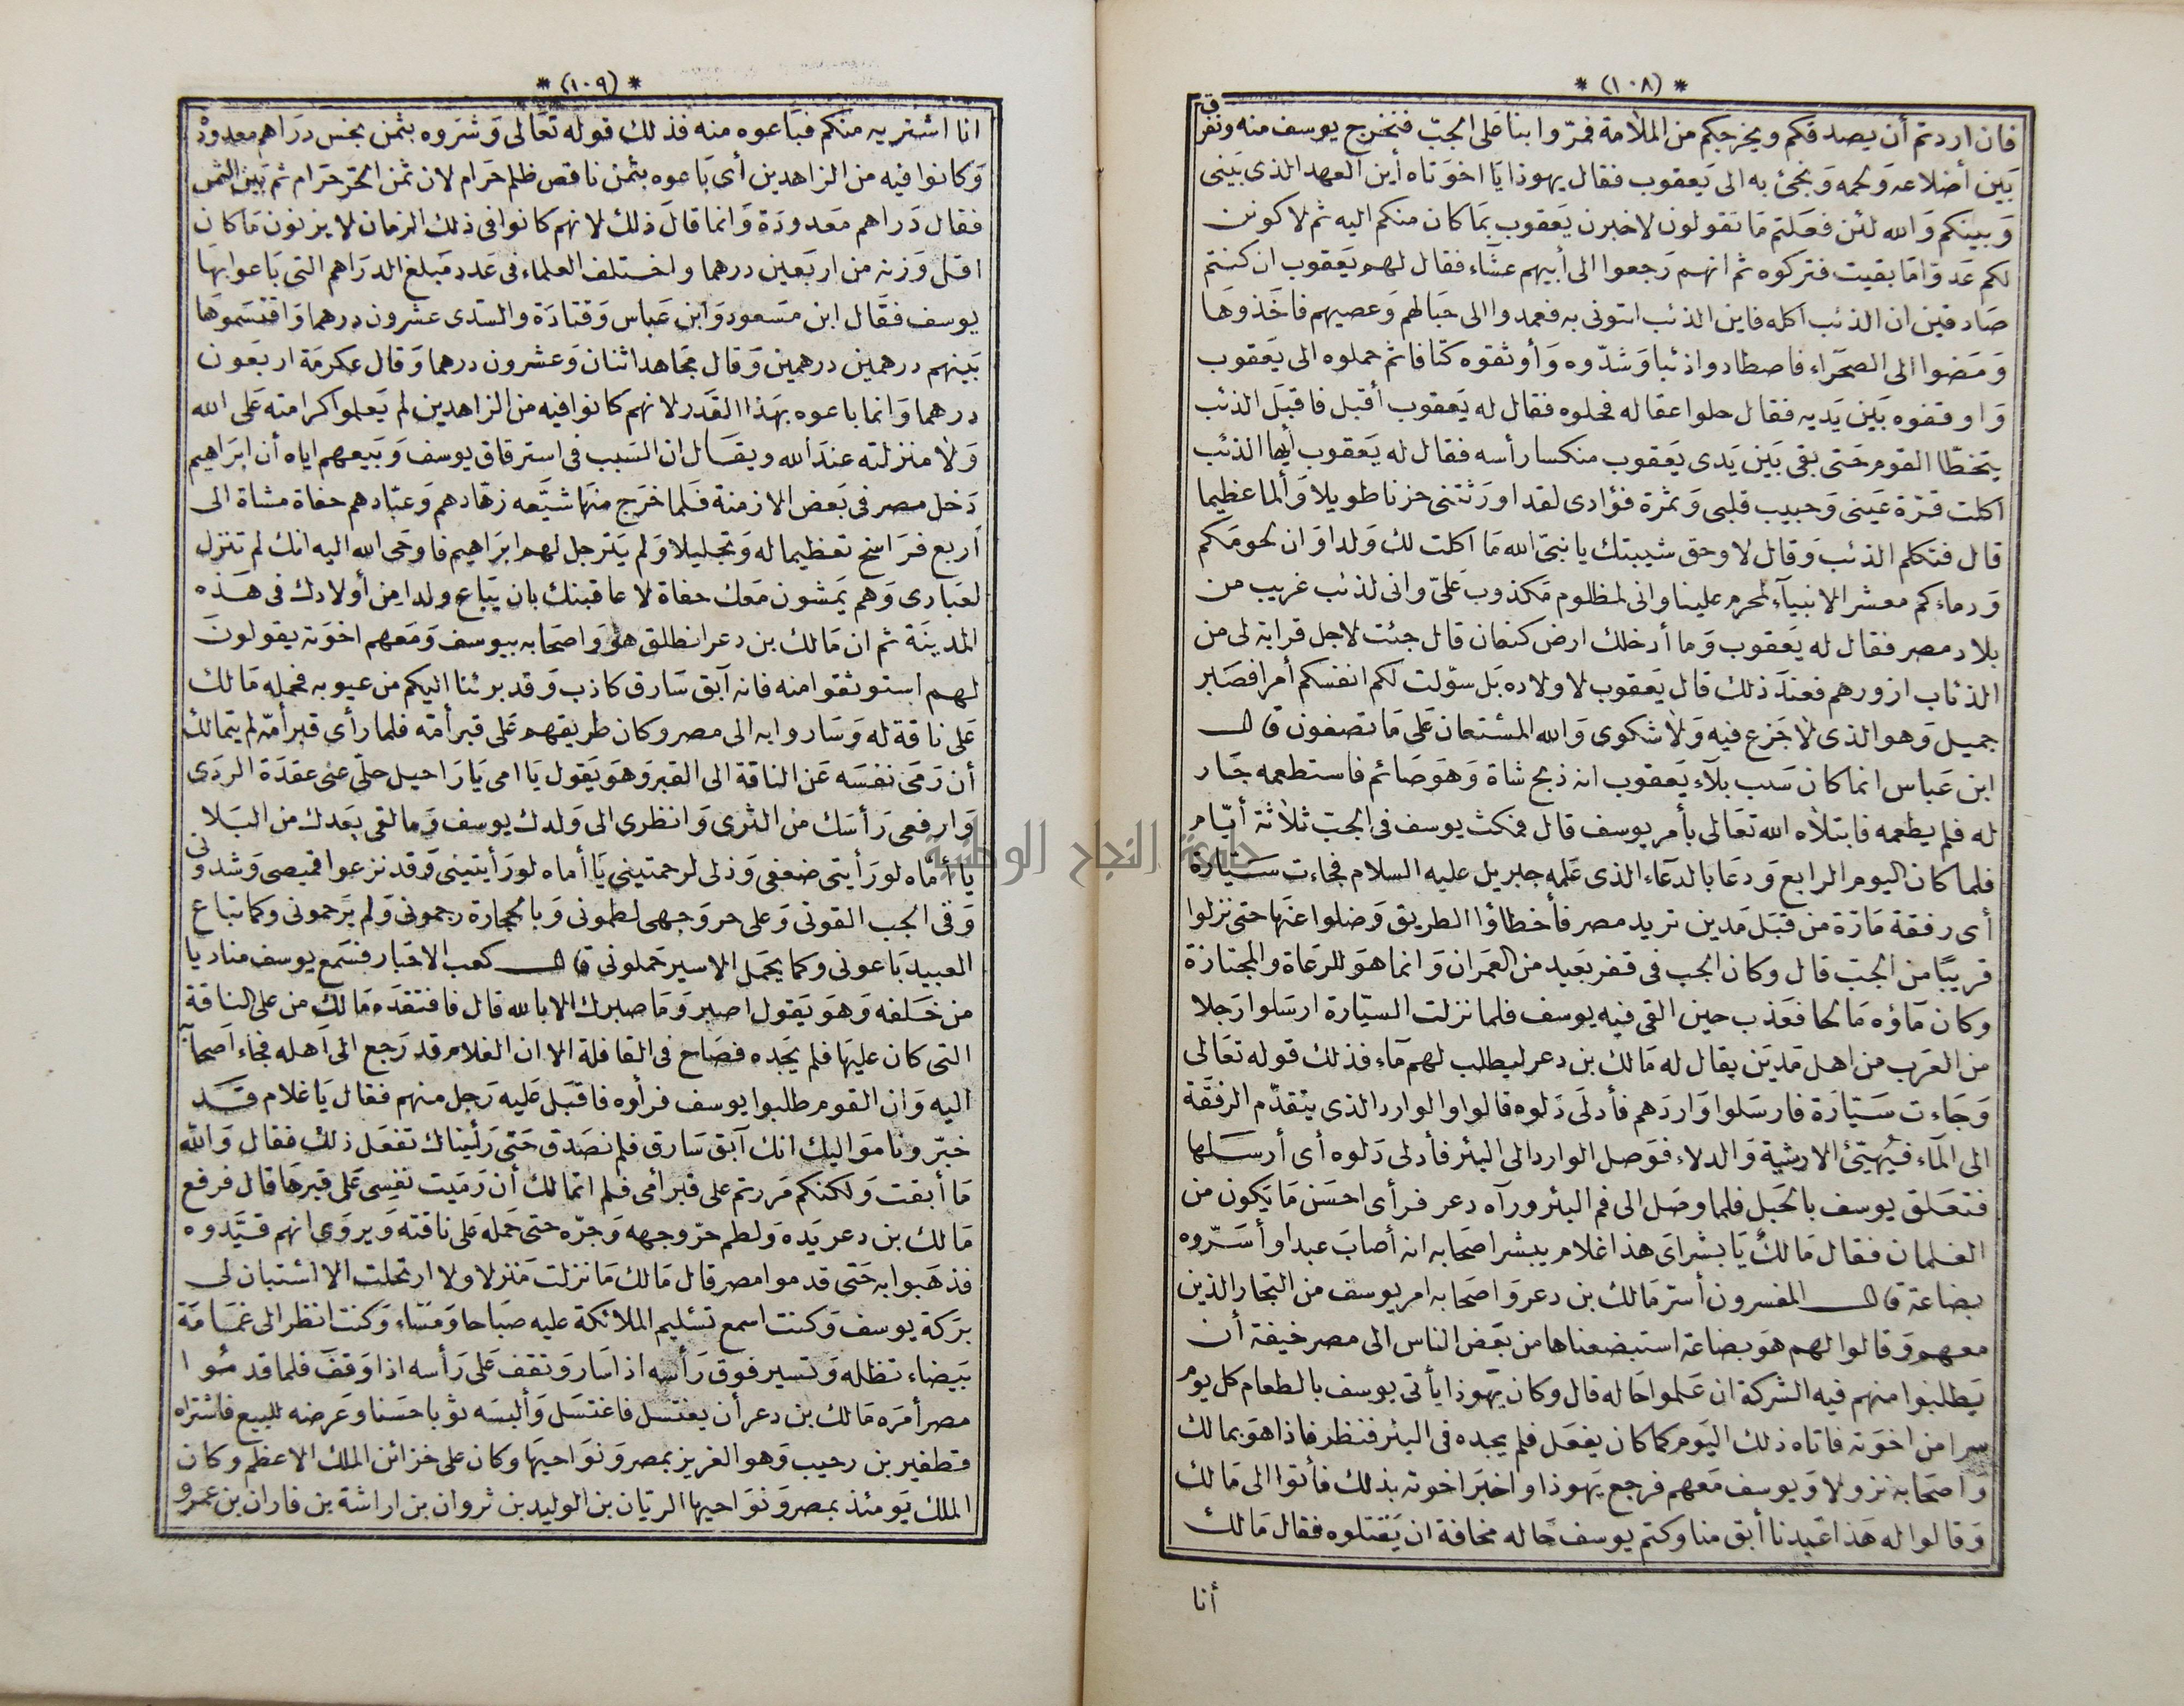 * (١٠٨) *
فان اردتم أن يصدقكم ويخرجكم من الملامة فمرّوا بنا على الجبّ فنخرج يوسف منه ونفرق
بَين أضلاعه وَلحمه وَنجئ به الى يَعقوب فقال يهوذا يَا اخوَتاه أين العهد الذى بَينى
وَبينكم وَالله لئن فعَلتم مَا تقولون لاخبرن يَعقوب بمَا كان منكم اليه ثم لاكونن
لكم عَدوّا مَا بقيت فتركوه ثم انهم رَجعوا الى أبيهم عشَآء فقال لهم يَعقوب ان كنتم
صَادقين ان الذئب اكله فاين الذئب ائتونى به فعمدوا الى حبَالهم وَعصيهم فاخَذوهَا
وَمَضوا الى الصحَراء فاصطادوا ذئبا وَشدّوه وَأوثقوه كتافا ثم حملوه الى يَعقوب
وَاوقفوه بَين يَديه فقال حلوا عقاله فحلوه فقال له يَعقوب أقبل فاقبَل الذئب
يتخطّا القوم حَتى بقى بَين يَدى يَعقوب منكسا رأسه فقال له يَعقوب أيها الذئب
اكلت قرّة عَينى وَحبيب قلبى وَثمرة فؤادى لقد اورَثتنى حزنا طويلا وَألما عظيما
قال فتكلم الذئب وَقال لا وحق شيبتك يا نبىّ الله مَا اكلت لك وَلدا وَان لحومَكم
وَدماءكم معشر الانبيآء لمحرم علينا وانى لمظلوم مَكذوب عَلىّ وانى لذئب غريب من
بلاد مصر فقال له يَعقوب وَما أدخلك ارض كنعان قال جئت لاجل قرابة لى من
الذئاب ازورهم فعندَ ذلك قال يَعقوب لاولاده بَل سوّلت لكم انفسكم أمرا فصَبر
جميل وَهو الذى لا جَزع فيه وَلا شكوى وَالله المسْتعان عَلى مَا تصفون قال
ابن عَباس انما كان سَبب بلآء يَعقوب انه ذبح شاة وَهوَ صَائم فاستطعمه جَار
له فلم يطعمه فابتلاه الله تعَالى بأمر يوسف قال فمكث يوسف فى الجبّ ثلاثة أيّام
فلما كان اليوم الرابع وَدعَا بالدعَاء الذى عَلمه جبريل عليه السلام فجاءت سَيّارة
أى رفقة مَارّة من قبَل مَدين تريد مصر فأخطاؤا الطريق وَضلوا عَنها حتى نزلوا
قريبًا من الجبّ قال وكان الجب فى قفر بَعيد من العمَران وَانما هوَ للرعَاة والمجتازة
وكان مَآؤه مَالحا فعَذب حين القى فيه يوسف فلما نزلت السيّارة ارسَلوا رَجلا
من العَرب من اهل مَديَن يقال له مَالك بن دعر ليطلب لهم مَآء فذلك قوله تعَالى
وَجَاءت سَيّارَة فارسَلوا وَاردَهم فأدلَى دَلوه قالوا والوارد الذى يتقدّم الرفقَة
الى المَآء فيُهيّئ الارشية وَالدلاء فوَصل الوارد الى البئر فأدلى دَلوه أى أرسَلها
فتعَلق يوسف بالحَبل فلما وصَل الى فم البئر ورآه دعر فرأى احسَن مَا يَكون من
الغلمان فقال مَالكٌ يَا بشراىَ هذا غلام يبشر اصحَابه انه أصابَ عبدا وأسَرّوه
بضاعة قال المفسرون أسرّ مَالك بن دعر وَاصحَابه امر يوسف من التجار الذين
معهم وَقالوا لهم هوَ بضاعة استبضعناها من بعَض الناس الى مصر خيفة أن
يَطلبوا منهم فيه الشركة ان عَلموا حَاله قال وكان يَهوذا يأتى يوسف بالطعام كل يوم
سرا من اخوَته فاتاه ذلك اليَوم كما كان يفعَل فلم يجده فى البئر فنظر فاذا هوَ بمالك
وَاصحَابه نزولا وَيوسف مَعهم فرجع يَهوذا واخبَر اخوته بذلك فأتوا الى مَالك
وَقالوا له هَذا عَبدنا أبق منا وكتم يوسف حَاله مخافة ان يَقتلوه فقال مَالك
أنا
* (١٠٩) *
انا اشتريه منكم فبَاعوه منه فذلك قوله تعَالى وَشرَوه بثمن بخس درَاهم معدودة
وَكانوا فيه من الزاهدين أى بَاعوه بثمن ناقص ظلم حَرام لان ثمن الحرّ حَرام ثم بَين الثمن
فقال دَراهم مَعدودَة وَانما قالَ ذلك لانهم كانوا فى ذلك الزمان لا يزنون مَا كان
اقل وَزنه من اربَعين درهما واختلف العلماء فى عَدد مَبلغ الدرَاهم التى بَاعوا بهَا
يوسف فقَال ابن مسَعود وَابن عَباس وَقتادَة والسّدى عشرون درهما وَاقتسَموهَا
بَينهم درهمين درهمين وَقال مجَاهد اثنان وَعشرون درهما وَقال عكرمَة اربعَون
درهما وَانما باعوه بهَذا القَدر لانهم كانوا فيه من الزاهدين لم يَعلموا كرامته عَلى الله
وَلا منزلته عندَ الله ويقَال ان السَبب فى استرقاق يوسف وَبَيعهم اياه أن ابرَاهيم
دَخل مصر فى بَعض الازمنة فلما خرَج منهَا شيَّعه زهّادهم وَعبّادهم حفاة مشاة الى
أربع فرَاسخ تعظيما له وَتجليلا وَلم يَترجل لهم ابرَاهيم فاوحَى الله اليه انك لم تنزل
لعبَادى وَهم يَمشون مَعك حفاة لاعاقبنك بان يبَاع ولد من أولادك فى هَذه
المدينَة ثم ان مَالك بن دعر انطلق هوَ وَاصحَابه بيوسف وَمَعهم اخوَته يقولونَ
لهم استوثقوا منه فانه آبق سَارق كاذب وَقد برئنا اليكم من عيوبه فحمله مَالك
عَلى ناقة له وَسَاروا به الى مصر وكان طريقهم عَلى قبر أمّه فلما رأى قبر أمّه لم يتمالك
أن رَمَى نفسَه عَن الناقة الى القبر وَهوَ يَقول يَا امى يَا رَاحيل حلّى عنى عقدَة الردَى
وَارفعى رَأسَك من الثرى وَانظرى الى وَلدك يوسف وَمَا لقى بَعدك من البَلا
يَا أمّاه لو رَأيتى ضعفى وَذلى لرحمتينى يَا أماه لو رَأيتينى وَقد نزعوا قميصى وَشدونى
وَفى الجب القونى وَعلى حر وَجهى لطمونى وَبالحجارة رجمونى وَلم يَرحمونى وكما تباع
العبيد بَاعونى وكما يحمَل الاسير حَملونى قال كعب الاحَبار فسَمع يوسف مناديا
من خَلفه وَهوَ يَقول اصبر وَمَا صبرك الا بالله قال فافتقدَه مَالك من على الناقة
التى كان عليهَا فلم يجَده فصَاح فى القافلة الا ان الغلام قد رَجع الى اهله فجَاء اصحَابه
اليه وَان القوم طلبوا يوسف فرأوه فاقبَل عَليه رَجل منهم فقال يَا غلام قد
خبّرونا موَاليك انك آبق سَارق فلم نصَدق حَتى رَأيناك تفعَل ذلك فقال وَالله
مَا أبقت وَلكنكم مَررتم على قبر أمى فلم اتمالك أن رَمَيت نفِسى عَلى قبرهَا قال فرفع
مَالك بن دعر يَده وَلطم حرّ وجهه وَجرّه حتى حَمله عَلى ناقته وَيروَى انهم قيَّدوه
فذهَبوا به حَتى قدموا مصر قال مَالك مَا نزلت مَنزلا ولا ارتحلت الا استبان لى
برَكة يوسف وَكنت اسمع تسَليم الملائكة عليه صبَاحا وَمَسَاء وَكنت انظر الى غمَامَة
بَيضاء تظله وَتسير فوق رَأسه اذا سَار وَتقف عَلى رَأسه اذا وَقفَ فلما قدموا
مصر أمَره مَالك بن دعر أن يغتسل فاغتسَل وَألبسَه ثوبا حسَنا وَعَرضه للبيع فاشتراه
قطفير بن رحيب وَهو العزيز بمصر وَنوَاحيهَا وكان على خزائن الملك الاعظم وكان
الملك يَومئذ بمصر وَنوَاحيها الريّان بن الوليد بن ثروان بن اراشة بن فاران بن عمرو
جامعة النجاح الوطنية